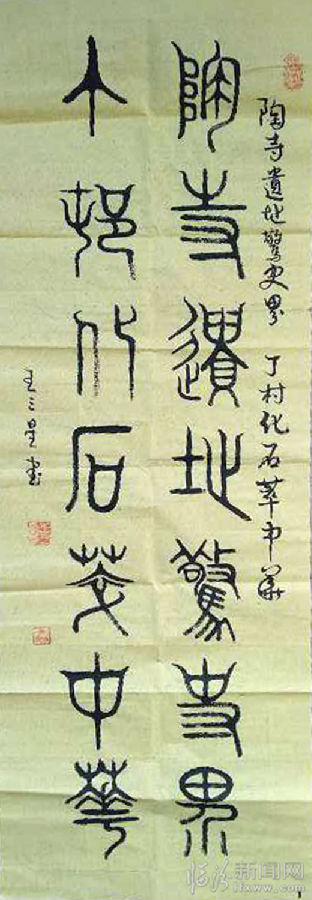 陶寺遺址驚史界 丁村化石萃中華
陶寺遺址驚史界
丁邨化石萃中華
王三星書
临汾新闻网
lfxww.com